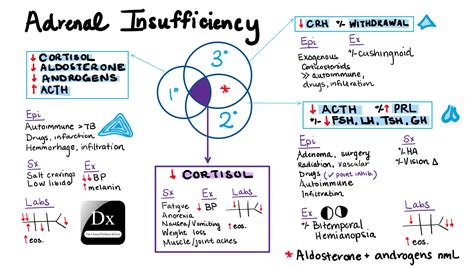 Adrenal Insufficiency
↓ CORTISOL
↓ ALDOSTERONE
↓ ANDROGENS
↑ ACTH
Epi
Autoimmune > TB
Drugs, infarction
Hemorrhage, infiltration
Sx
Salt cravings
Low libido
Ex
↓↓ BP
↑ melanin
Labs
↑ eos.
Dx
1°
2°
3°
*
↓ CORTISOL
Sx
Fatigue
Anorexia
Nausea/Vomiting
Weight loss
Muscle/joint aches
Ex
↓ BP
Labs
↑ eos.
↓ CRH +/- WITHDRAWAL
Epi
Exogenous
Corticosteroids
>> autoimmune,
drugs, infiltration
Ex
+/- cushingnoid
↓ ACTH +/- ↑ PRL
+/- ↓ FSH, LH, TSH, GH
Epi
Adenoma, surgery
Radiation, vascular
Drugs (✓point inhib.)
Autoimmune
Infiltration
Sx
+/- HA
+/- Vision Δ
Ex
+/- Bitemporal
Hemianopsia
* Aldosterone + androgens nml